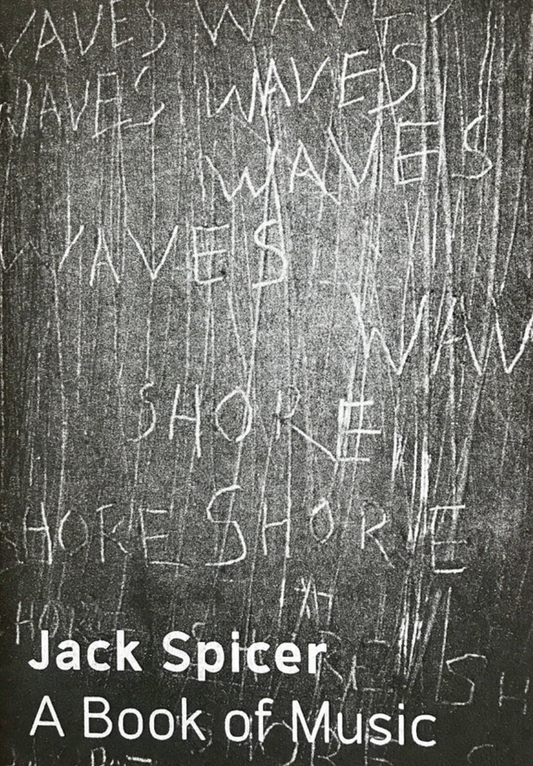 WAVES WAVES
WAVES WAVES
WAVES
WAVES
WAV
SHORE
SHORE SHORE
SH
Jack Spicer
A Book of Music